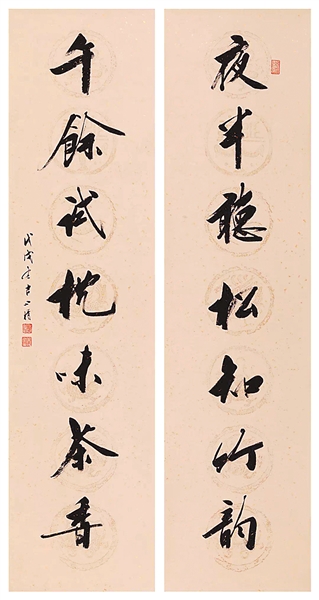 夜半聽松知竹韻
午餘試椀味茶香
戊戌